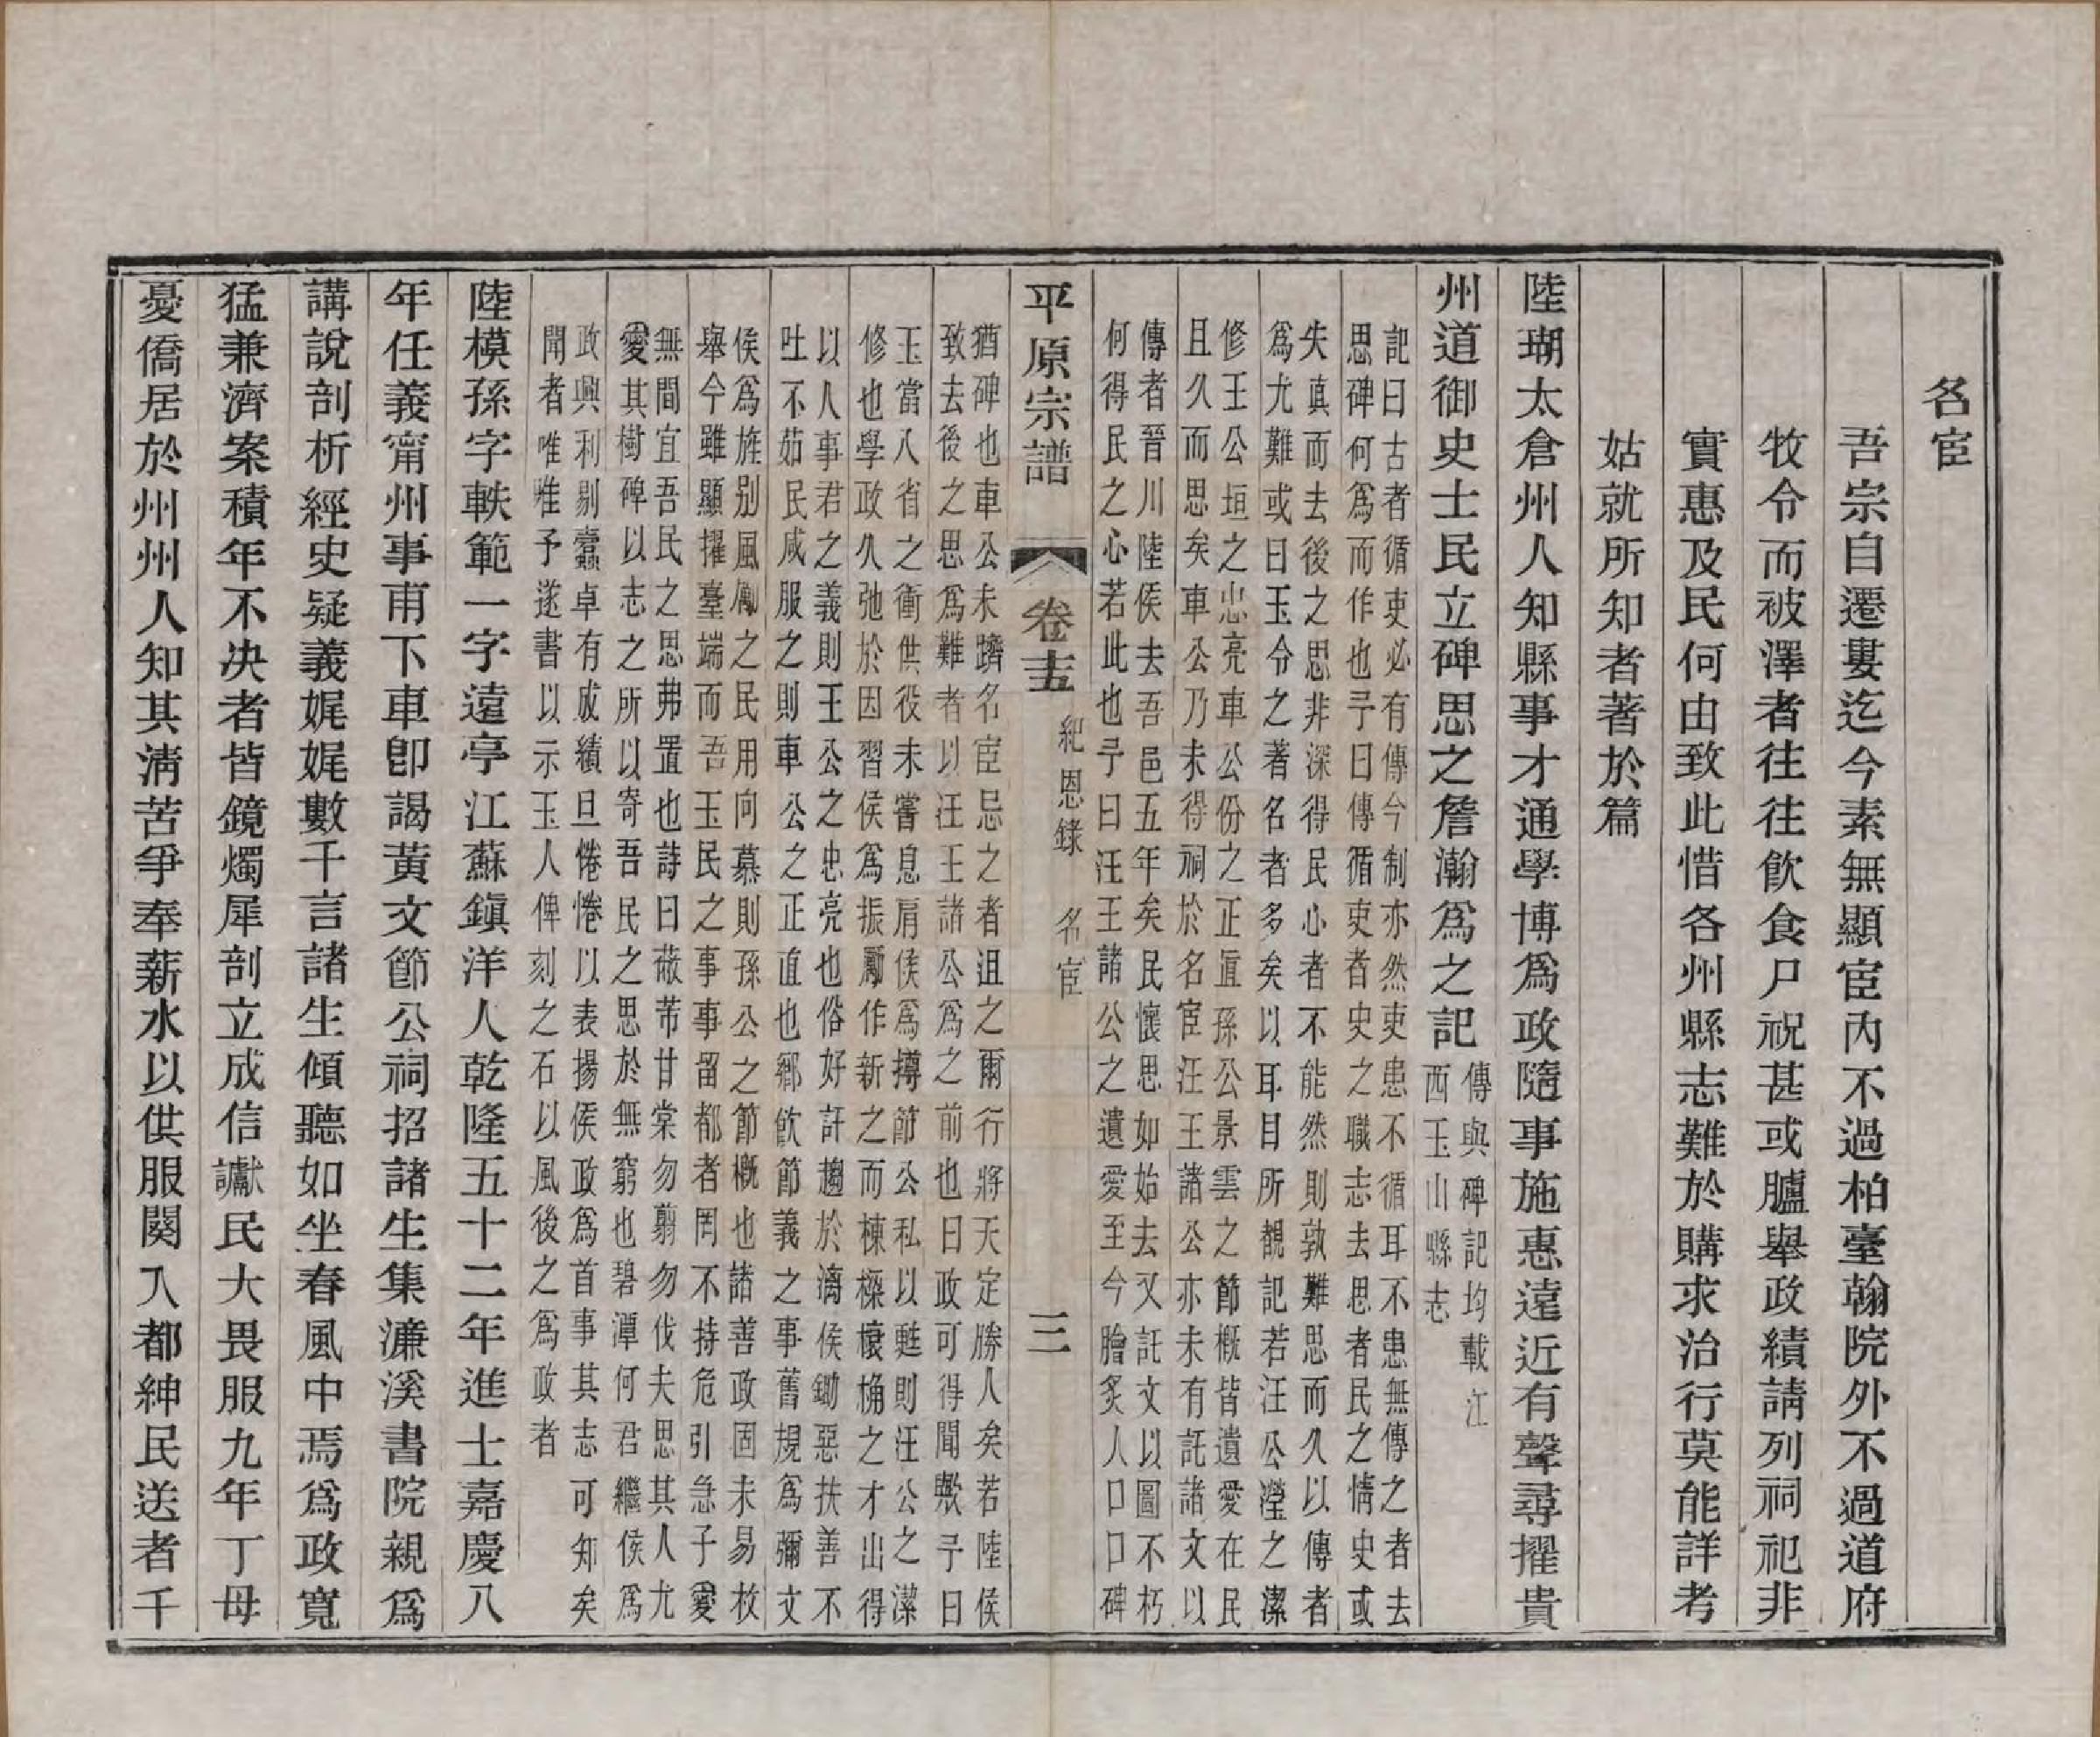 名宦
吾宗自遷婁迄今素無顯宦內不過柏臺翰院外不過道府
牧令而被澤者往往飲食尸祝甚或臚舉政績請列祠祀非
實惠及民何由致此惜各州縣志難於購求治行莫能詳考
姑就所知者著於篇
陸瑚太倉州人知縣事才通學博爲政隨事施惠遠近有聲尋擢貴
州道御史士民立碑思之詹瀚爲之記
傳與碑記均載江
西玉山縣志
記曰古者循吏必有傳今制亦然吏患不循耳不患無傳之者去
思碑何爲而作也予曰傳循吏者史之職志去思者民之情史或
失眞而去後之思非深得民心者不能然則孰難思而久以傳者
爲尤難或曰玉令之著名者多矣以耳目所覩記若汪公瀅之潔
修王公垣之忠亮車公份之正直孫公景雲之節槪皆遺愛在民
且久而思矣車公乃未得祠於名宦汪王諸公亦未有託諸文以
傳者晉川陸侯去吾邑五年矣民懷思如始去又託文以圖不朽
何得民之心若此也予曰汪王諸公之遺愛至今膾炙人口口碑
平原宗譜
卷十五
紀恩錄 名宦
三
猶碑也車公未躋名宦忌之者沮之爾行將天定勝人矣若陸侯
致去後之思爲難者以汪王諸公爲之前也曰政可得聞歟予曰
玉當八省之衝供役未嘗息肩侯爲撙節公私以甦則汪公之潔
修也學政久弛於因習侯爲振勵作新之而棟樑榱桷之才出得
以人事君之義則王公之忠亮也俗好訐趨於漓侯鋤惡扶善不
吐不茹民咸服之則車公之正直也鄉飲節義之事舊規爲彌文
侯爲旌別風勵之民用向慕則孫公之節槪也諸善政固未易枚
舉今雖顯擢臺端而吾玉民之事事留都者罔不持危引急子愛
無間宜吾民之思弗置也詩曰蔽芾甘棠勿翦勿伐夫思其人尤
愛其樹碑以志之所以寄吾民之思於無窮也碧潭何君繼侯爲
政興利剔蠹卓有成績旦惓惓以表揚侯政爲首事其志可知矣
聞者唯唯予遂書以示玉人俾刻之石以風後之爲政者
陸模孫字軼範一字遠亭江蘇鎮洋人乾隆五十二年進士嘉慶八
年任義甯州事甫下車卽謁黃文節公祠招諸生集濂溪書院親爲
講說剖析經史疑義娓娓數千言諸生傾聽如坐春風中焉爲政寬
猛兼濟案積年不決者皆鏡燭犀剖立成信讞民大畏服九年丁母
憂僑居於州州人知其淸苦爭奉薪水以供服闋入都紳民送者千